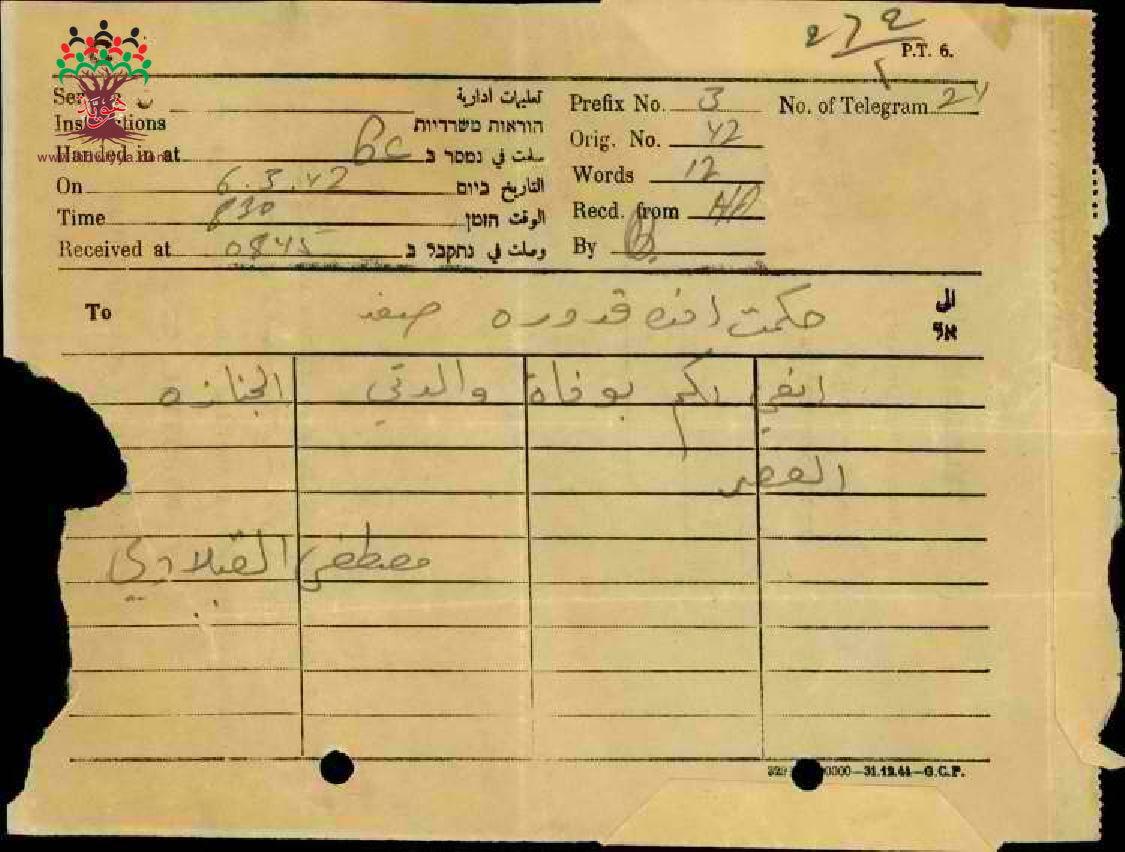 272
P.T. 6.
تعليمات ادارية
Prefix No. 3 No. of Telegram 24
Instructions הוראות משרדיות
Orig. No. 42
Handed in at סلمت في נמסר ב
Words 12
On 6.3.42 التاريخ ביום
Time 830 الوقت הזמן
Recd. from
Received at 0845 وصلت في נתקבל ב
By
To حكمت افندي قدوره صفد الى אל
انعي لكم بوفاة والدتي الجنازه
العصر
مصطفى
31.12.44—G.C.P.